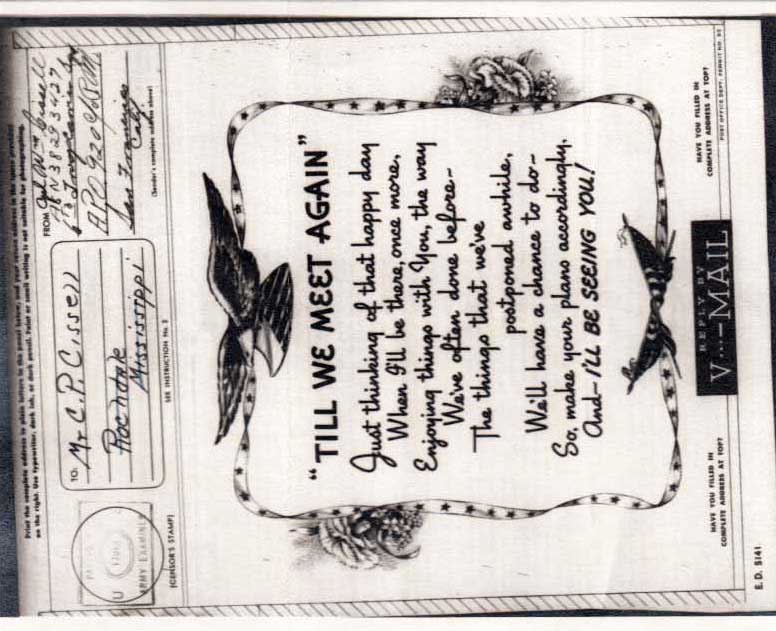 Print the complete address in plain letters in the panel below, and your return address in the space provided
on the right. Use typewriter, dark ink, or dark pencil. Faint or small writing is not suitable for photographing.
TO:
Mr C. P. Cissell
Rochdale
Mississippi
SEE INSTRUCTION No. 2
FROM
Cissell
38293427
APO 920
San Francisco
Calif
(Sender's complete address above)
ARMY EXAMINER
(CENSOR'S STAMP)
"TILL WE MEET AGAIN"
Just thinking of that happy day
When I'll be there, once more,
Enjoying things with You, the way
We've often done before-
The things that we've
postponed awhile,
We'll have a chance to do-
So, make your plans accordingly,
And-I'LL BE SEEING YOU!
HAVE YOU FILLED IN
COMPLETE ADDRESS AT TOP?
REPLY BY
V···-MAIL
HAVE YOU FILLED IN
COMPLETE ADDRESS AT TOP?
POST OFFICE DEPT. PERMIT NO. 95
E. D. 5141